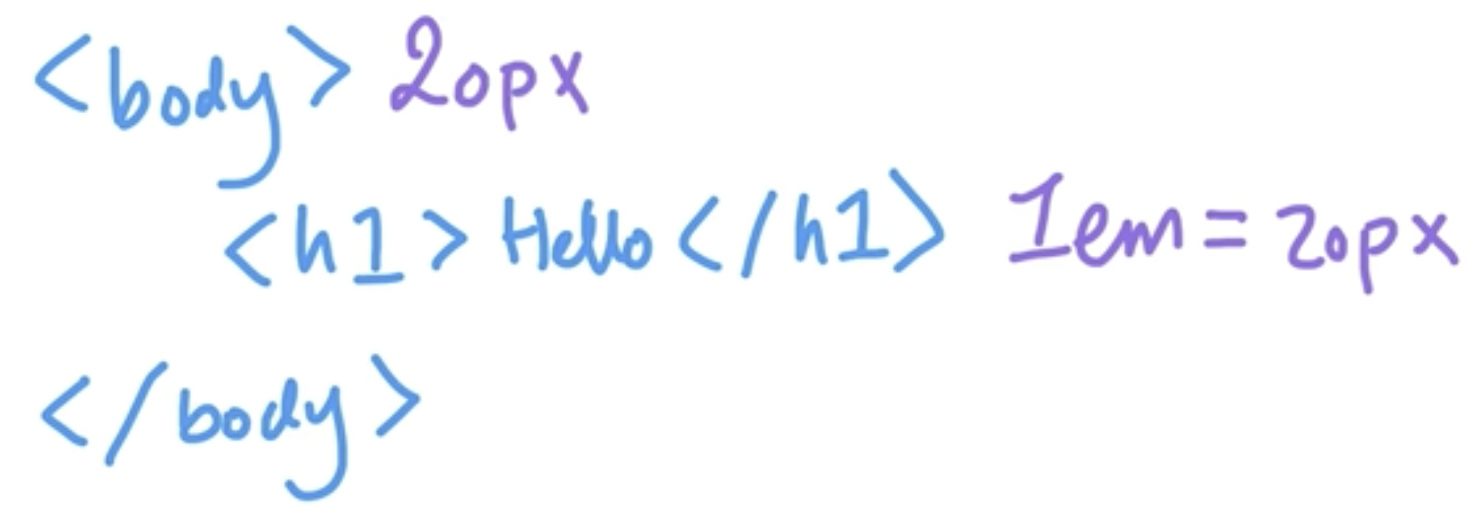 <body> 20px
<h1> Hello </h1> 1em = 20px
</body>